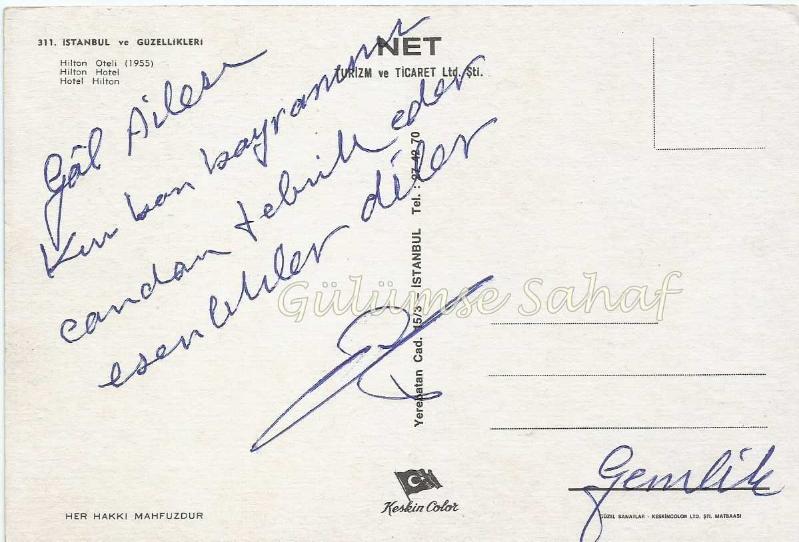 311. İSTANBUL ve GÜZELLİKLERİ
Hilton Oteli (1955)
Hilton Hotel
Hotel Hilton
NET
TURİZM ve TİCARET Ltd. Şti.
Yerebatan Cad. 15/3 – İSTANBUL Tel. : 27 42 70
Gâl Ailesi
Kurban bayramınızı
candan tebrik eder
esenlikler diler
Gülümse Sahaf
Gemlik
Keskin Color
HER HAKKI MAHFUZDUR
GÜZEL SANATLAR - KESKİNCOLOR LTD. ŞTİ. MATBAASI